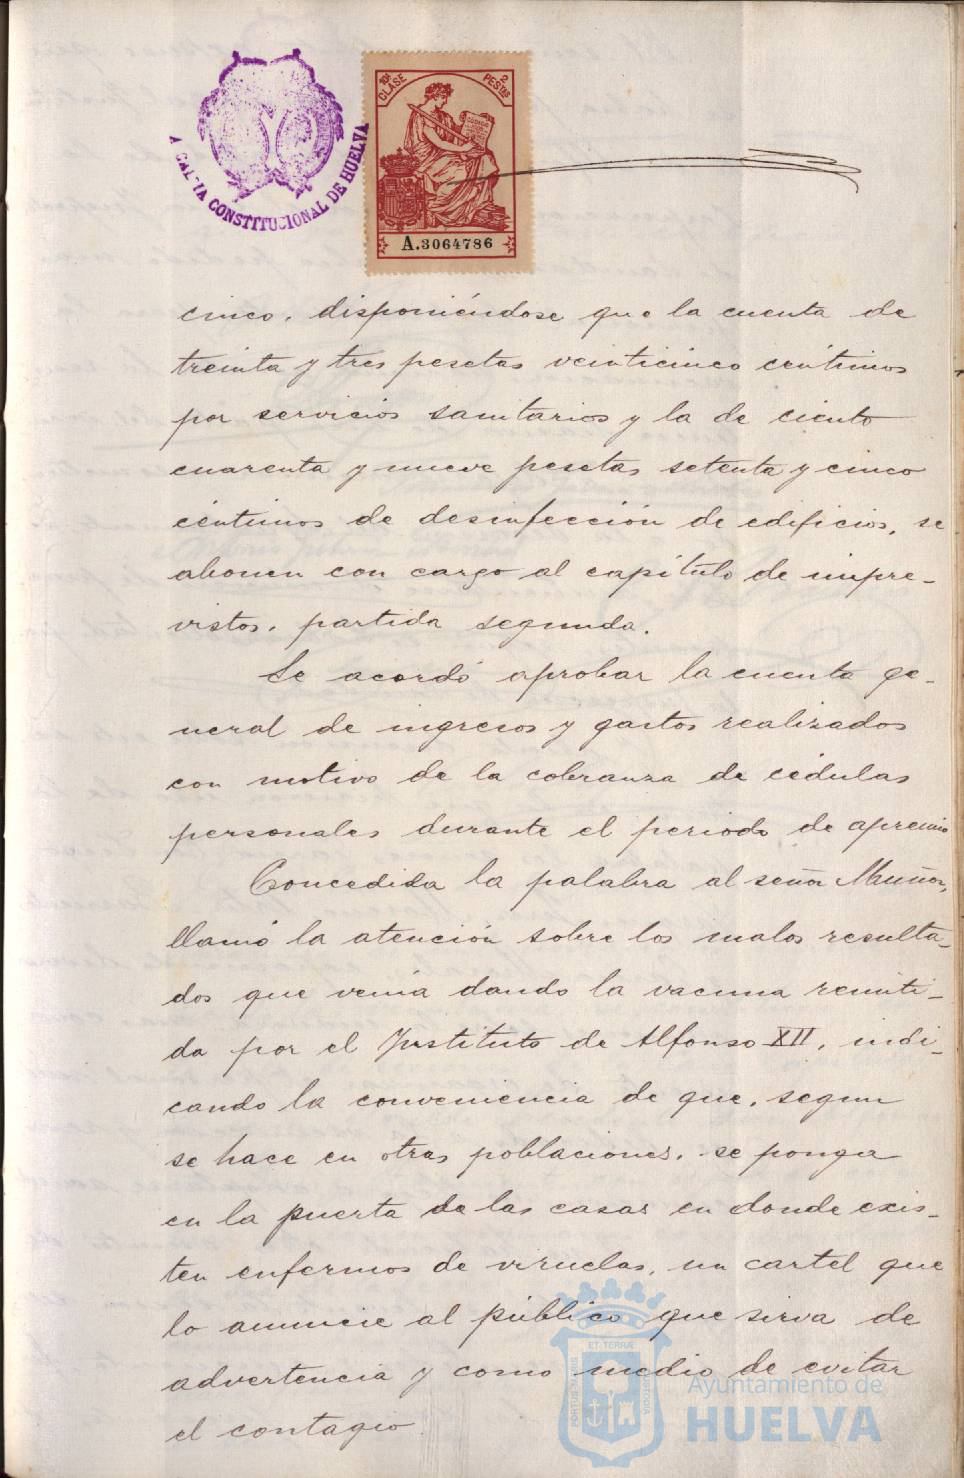 ALCALDIA CONSTITUCIONAL DE HUELVA
10ª CLASE 2 PESETAS
A.3064786
cinco, disponiéndose que la cuenta de
treinta y tres pesetas veinticinco céntimos
por servicios sanitarios y la de ciento
cuarenta y nueve pesetas setenta y cinco
céntimos de desinfección de edificios, se
abonen con cargo al capítulo de impre-
vistos, partida segunda.
Se acordó aprobar la cuenta ge-
neral de ingresos y gastos realizados
con motivo de la cobranza de cédulas
personales durante el periodo de apremio
Concedida la palabra al señor Muñoz,
llamó la atención sobre los malos resulta-
dos que venía dando la vacuna remiti-
da por el Instituto de Alfonso XII, indi-
cando la conveniencia de que, segun
se hace en otras poblaciones, se ponga
en la puerta de las casas en donde exis-
ten enfermos de viruelas, un cartel que
lo anuncie al público que sirva de
advertencia y como medio de evitar
el contagio.
PORTUS MARIS ET TERRÆ CUSTODIA
Ayuntamiento de
HUELVA